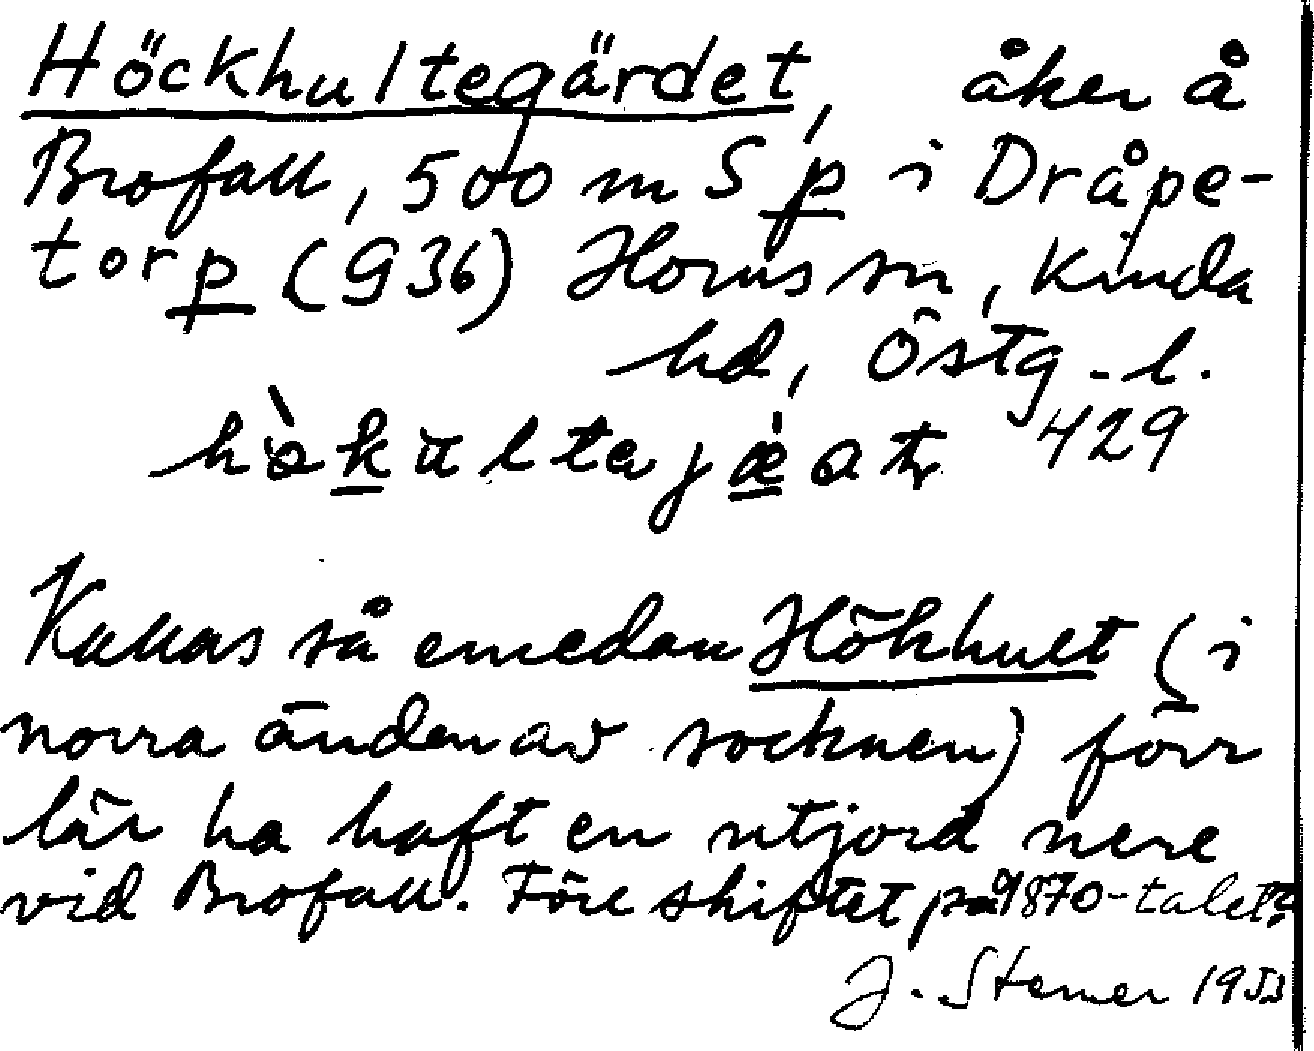 Höckhultegärdet, åker å
Brofall, 500 m S p i Dråpe-
torp (936) Horns sn, Kinda
hd, Östg.l.
429
Kallas så emedan Hökhult (i
norra änden av socknen) förr
lär ha haft en utjord nere
vid Brofall. Före skiftet på 1870-talet?
J. Stemer 1953